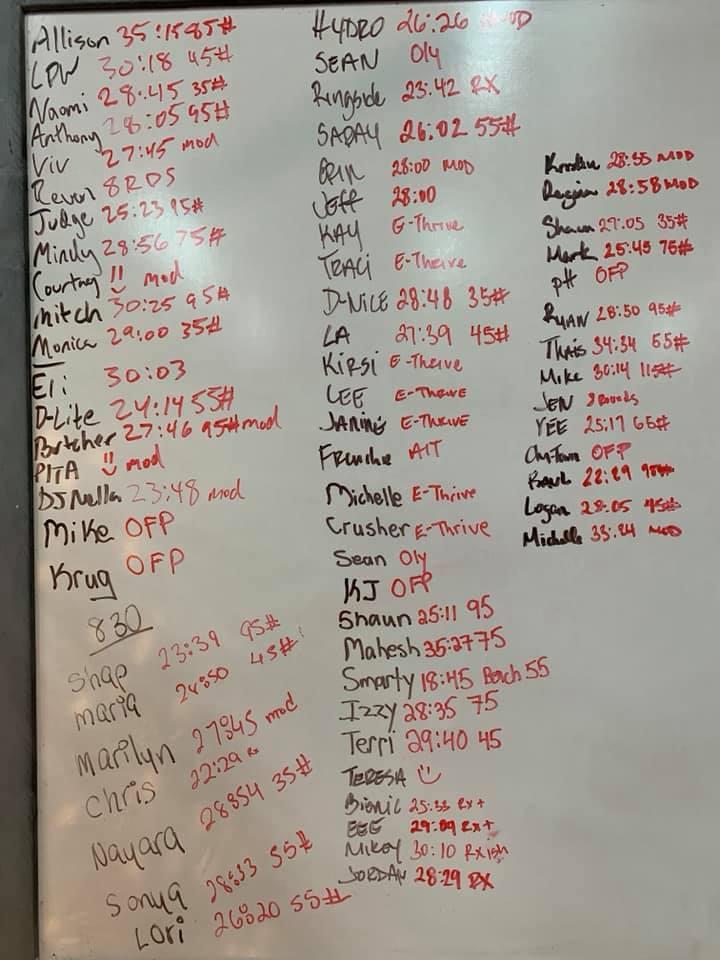 Allison 35:15 85#
LPW 30:18 45#
Naomi 28:45 35#
Anthony 28:05 95#
Viv 27:45 mod
8RDS
Judge 25:23 95#
Mindy 28:56 75#
Courtney !! mod
Mitch 30:25 95#
Monica 29:00 35#
Eli 30:03
D-Lite 24:14 55#
Butcher 27:46 95# mod
PITA mod
DJ Nella 23:48 mod
Mike OFP
Krug OFP
830
Shap 23:39 95#
Maria 24:50 45#
Marilyn 27:45 mod
Chris 22:29 Rx
Nayara 28:54 35#
Sonya 28:33 55#
Lori 26:20 55#
HYDRO 26:26 MOD
SEAN Oly
Ringside 23:42 RX
SADAY 26:02 55#
ERIN 28:00 MOD
JEFF 28:00
KAY E-Thrive
TRACI E-Thrive
D-NICE 28:48 35#
LA 27:39 45#
KIRSI E-Thrive
LEE E-Thrive
JANINE E-THRIVE
Frenchie AIT
Michelle E-Thrive
Crusher E-Thrive
Sean Oly
KJ OFP
Shaun 25:11 95
Mahesh 35:27 75
Smarty 18:45 Bench 55
Izzy 28:35 75
Terri 29:40 45
TERESA
Bionic 25:33 RX+
EEE 29:09 RX+
Mikey 30:10 RXish
JORDAN 28:29 RX
28:35 MOD
Regina 28:58 MOD
Shawn 27:05 35#
Mark 25:45 75#
PH OFP
RYAN 28:50 95#
Thais 34:34 55#
Mike 30:14 115#
JEN 8 Rounds
YEE 25:17 65#
OFP
22:29
Logan 28:05 95#
Michelle 33:24 MOD